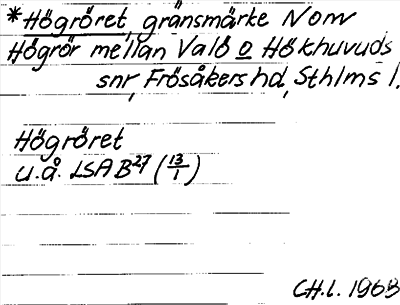 *Högröret, gränsmärke Nom
Högrör mellan Valö o Hökhuvuds
snr, Frösåkers hd, Sthlms l.
Högröret
u.å. LSA B27 (13/1)
CH.l. 1968